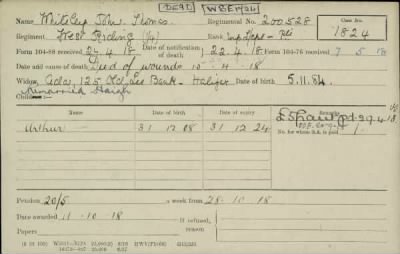 DEAD W.B.E. M24
Name Whiteley John Thomas. Regimental No. 200528 Case No.
Regiment West Riding Rank 1824
Form 104-88 received 24.4.18 Date of notification of death 22.4.18 Form 104-76 received 7 5 18
Date and cause of death Died of wounds 15.4.18
Widow Ada, 125 Old Lee Bank - Halifax Date of birth 5.11.84
Remarried Haigh
Children:—
Date of birth Date of expiry
Arthur — 31 12 08 31 12 24
No. for whom S.A. is paid
Pension 20/5 a week from 28-10-18
Date awarded 11-10-18 If refused, reason
Papers